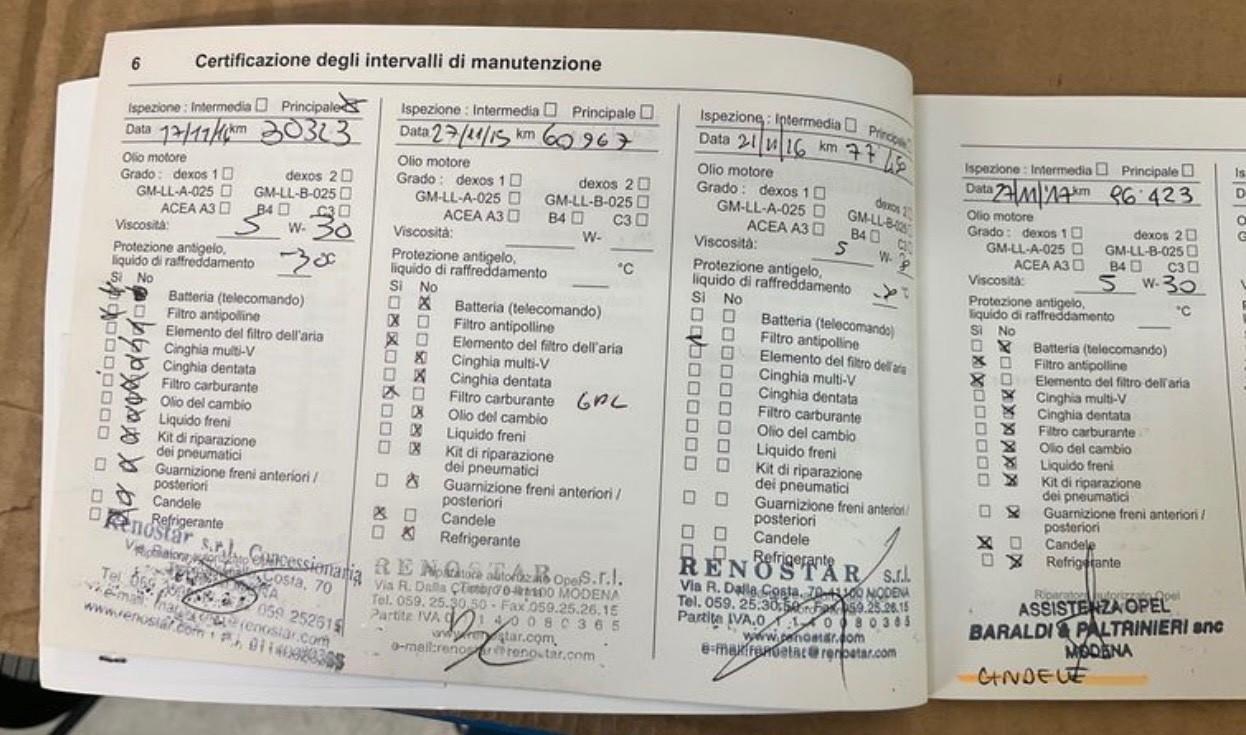 6 Certificazione degli intervalli di manutenzione
Ispezione : Intermedia Principale
Data 17/11/14 km 30323
Olio motore
Grado : dexos 1 dexos 2
GM-LL-A-025 GM-LL-B-025
ACEA A3 B4 C3
Viscosità: 5 W- 30
Protezione antigelo,
liquido di raffreddamento -30
Sì No
Batteria (telecomando)
Filtro antipolline
Elemento del filtro dell'aria
Cinghia multi-V
Cinghia dentata
Filtro carburante
Olio del cambio
Liquido freni
Kit di riparazione
dei pneumatici
Guarnizione freni anteriori /
posteriori
Candele
Refrigerante
Renostar s.r.l. Concessionaria
Costa, 70
Tel. 059
059 252615
e-mail:
www.renostar.com
Ispezione : Intermedia Principale
Data 27/11/15 km 60967
Olio motore
Grado : dexos 1 dexos 2
GM-LL-A-025 GM-LL-B-025
ACEA A3 B4 C3
Viscosità: W-
Protezione antigelo,
liquido di raffreddamento °C
Sì No
Batteria (telecomando)
Filtro antipolline
Elemento del filtro dell'aria
Cinghia multi-V
Cinghia dentata
Filtro carburante GPL
Olio del cambio
Liquido freni
Kit di riparazione
dei pneumatici
Guarnizione freni anteriori /
posteriori
Candele
Refrigerante
Riparatore autorizzato Opel
RENOSTAR S.r.l.
Via R. Dalla Costa, 70-41100 MODENA
Tel. 059. 25.30.50 - Fax 059.25.26.15
Partita IVA 0 1 1 4 0 0 8 0 3 6 5
www.renostar.com
e-mail:renostar@renostar.com
Ispezione : Intermedia Principale
Data 21/11/16 km
Olio motore
Grado : dexos 1 dexos 2
GM-LL-A-025 GM-LL-B-025
ACEA A3 B4 C3
Viscosità: 5 W-
Protezione antigelo,
liquido di raffreddamento
Sì No
Batteria (telecomando)
Filtro antipolline
Elemento del filtro dell'aria
Cinghia multi-V
Cinghia dentata
Filtro carburante
Olio del cambio
Liquido freni
Kit di riparazione
dei pneumatici
Guarnizione freni anteriori /
posteriori
Candele
Refrigerante
RENOSTAR S.r.l.
Via R. Dalla Costa, 70-41100 MODENA
Tel. 059. 25.30.50 - Fax 059.25.26.15
Partita IVA 0 1 1 4 0 0 8 0 3 6 5
www.renostar.com
e-mail:renostar@renostar.com
Ispezione : Intermedia Principale
Data 27/11/17 km 96.423
Olio motore
Grado : dexos 1 dexos 2
GM-LL-A-025 GM-LL-B-025
ACEA A3 B4 C3
Viscosità: 5 W- 30
Protezione antigelo,
liquido di raffreddamento °C
Sì No
Batteria (telecomando)
Filtro antipolline
Elemento del filtro dell'aria
Cinghia multi-V
Cinghia dentata
Filtro carburante
Olio del cambio
Liquido freni
Kit di riparazione
dei pneumatici
Guarnizione freni anteriori /
posteriori
Candele
Refrigerante
Riparatore autorizzato Opel
ASSISTENZA OPEL
BARALDI & PALTRINIERI snc
MODENA
CANDELE